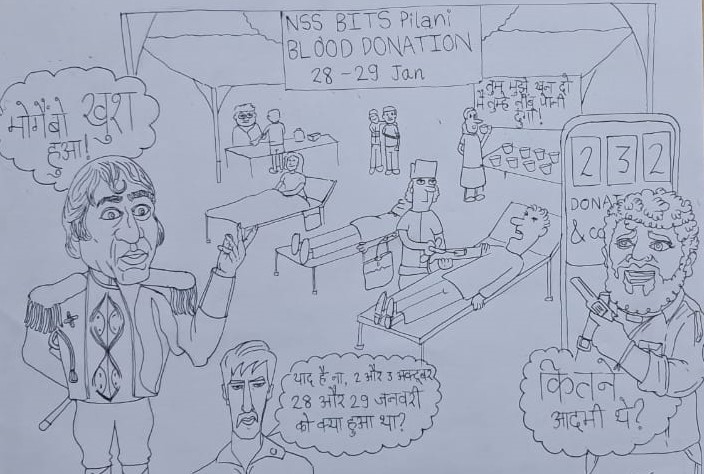 NSS BITS Pilani
BLOOD DONATION
28 - 29 Jan
मोगैंबो खुश
हुआ!
तुम मुझे खून दो
मैं तुम्हे नींबू पानी
2 3 2
DONAT
& co
याद है ना, 2 और 3 अक्टूबर
28 और 29 जनवरी
को क्या हुआ था?
कितने
आदमी थे?